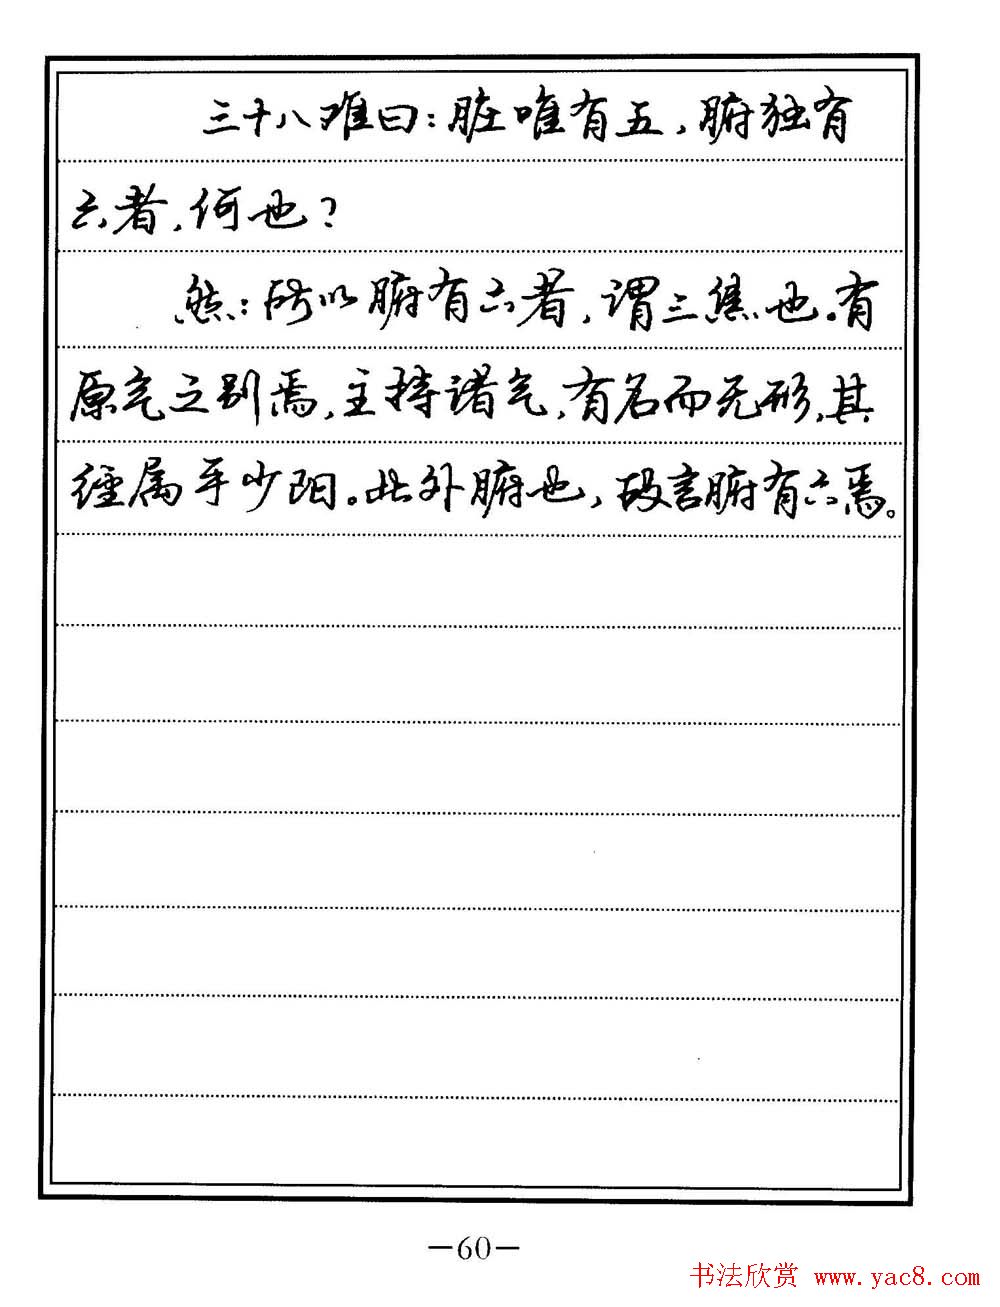 三十八难曰：脏唯有五，腑独有
六者，何也？
然：所以腑有六者，谓三焦也。有
原气之别焉，主持诸气，有名而无形，其
经属手少阳。此外腑也，故言腑有六焉。
—60—
书法欣赏 www.yac8.com